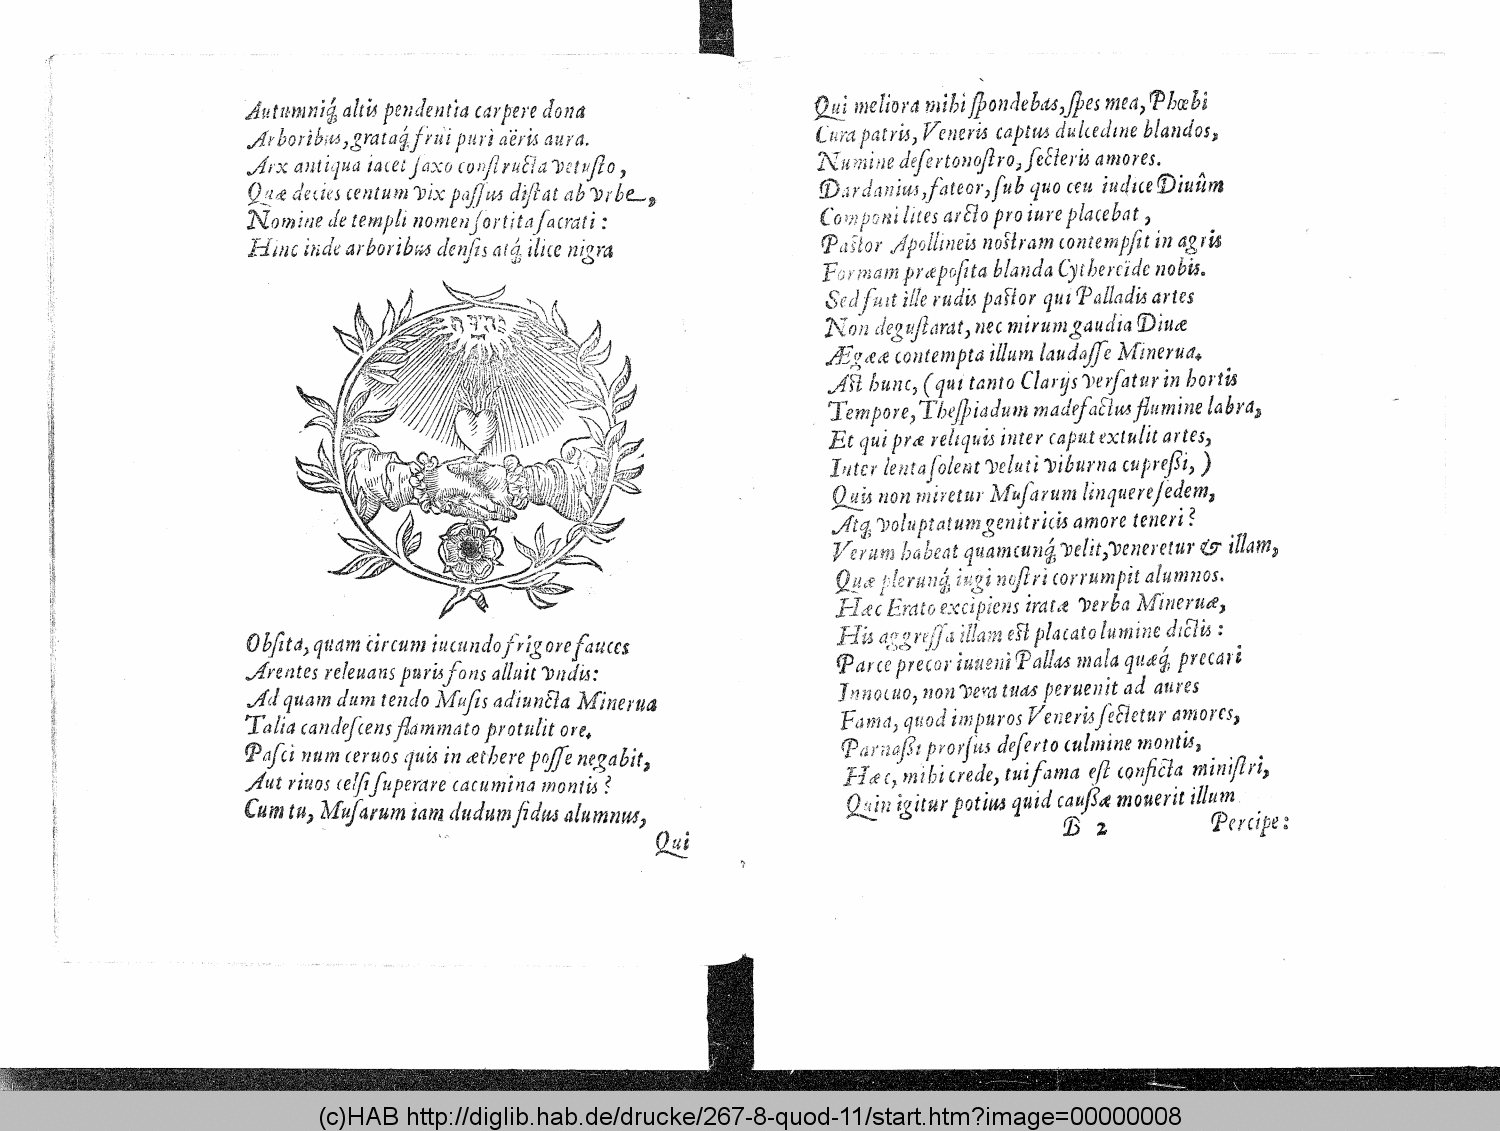 Autumniq́ʒ altis pendentia carpere dona
Arboribus, grataq́ʒ frui puri aëris aura.
Arx antiqua iacet ſaxo conſtructa vetuſto,
Quæ decies centum vix paſſus diſtat ab vrbe,
Nomine de templi nomen ſortita ſacrati:
Hinc inde arboribus denſis atq́ʒ ilice nigra
יהוה
Obſita, quam circum iucundo frigore fauces
Arentes releuans puris fons alluit vndis:
Ad quam dum tendo Muſis adiuncta Minerua
Talia candeſcens flammato protulit ore.
Paſci num ceruos quis in æthere poſſe negabit,
Aut riuos celſi ſuperare cacumina montis?
Cum tu, Muſarum iam dudum fidus alumnus,
Qui
Qui meliora mihi ſpondebas, ſpes mea, Phœbi
Cura patris, Veneris captus dulcedine blandos,
Numine deſerto noſtro, ſecteris amores.
Dardanius, fateor, ſub quo ceu iudice Diuûm
Componi lites arcto pro iure placebat,
Paſtor Apollineis noſtram contempſit in agris
Formam præpoſita blanda Cythereïde nobis.
Sed fuit ille rudis paſtor qui Palladis artes
Non deguſtarat, nec mirum gaudia Diuæ
Ægææ contempta illum laudaſſe Minerua.
Aſt hunc, (qui tanto Clarijs verſatur in hortis
Tempore, Theſpiadum madefactus flumine labra,
Et qui præ reliquis inter caput extulit artes,
Inter lenta ſolent veluti viburna cupreſſi,)
Quis non miretur Muſarum linquere ſedem,
Atqʒ voluptatum genitricis amore teneri?
Verum habeat quamcunq́ʒ velit, veneretur & illam,
Quæ plerunq́ʒ iugi noſtri corrumpit alumnos.
Hæc Erato excipiens iratæ verba Mineruæ,
His aggreſſa illam eſt placato lumine dictis:
Parce precor iuueni Pallas mala quæq́ʒ precari
Innocuo, non vera tuas peruenit ad aures
Fama, quod impuros Veneris ſectetur amores,
Parnaſſi prorſus deſerto culmine montis,
Hæc, mihi crede, tui fama eſt conficta miniſtri,
Quin igitur potius quid cauſſæ mouerit illum
B 2 Percipe:
(c)HAB http://diglib.hab.de/drucke/267-8-quod-11/start.htm?image=00000008